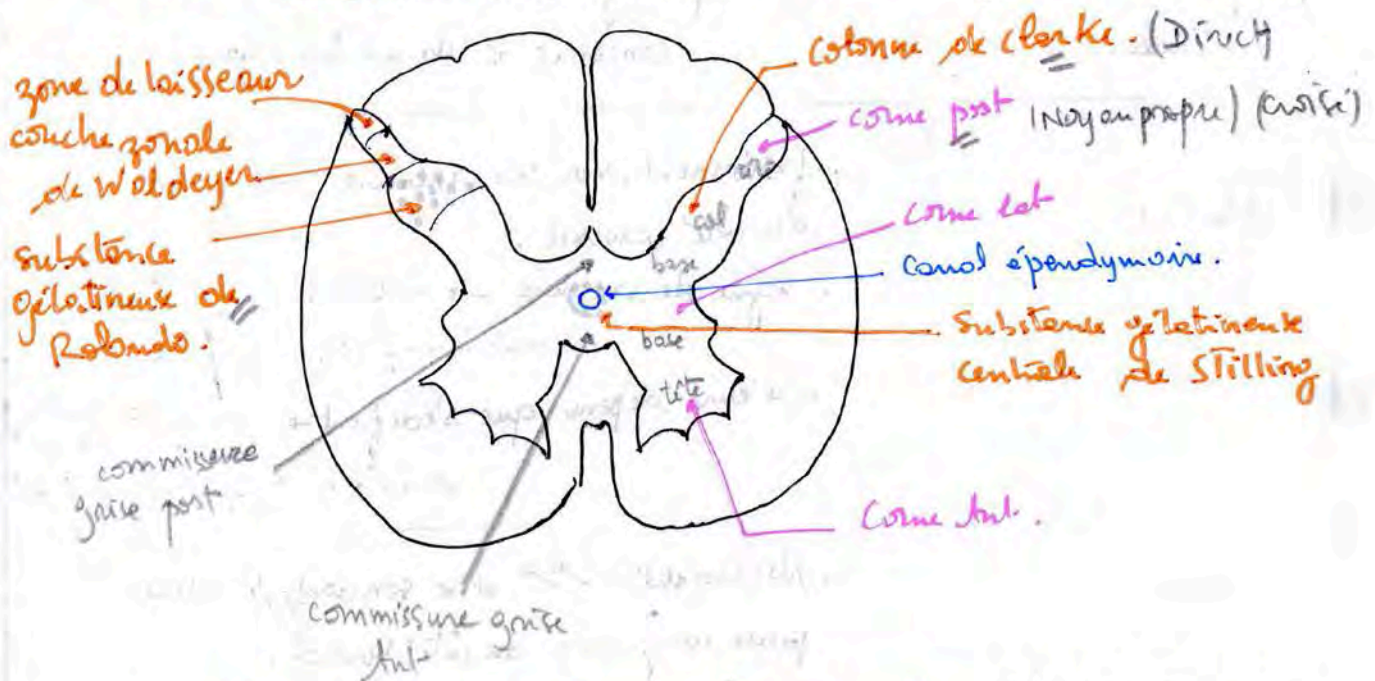 zone de laisseaur
couche zonale
de Waldeyer
substance
gélatineuse de
Rolando.
commissure
grise post
commissure grise
Ant
colonne de clarke. (Direct)
corne post (Noyau propre) (croisé)
corne lat
canal épendymaire.
substance gélatineuse
centrale de Stilling
Corne Ant.
col
base
base
tête